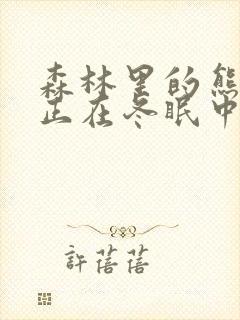 森林里的熊
正在冬眠中
許蓓蓓